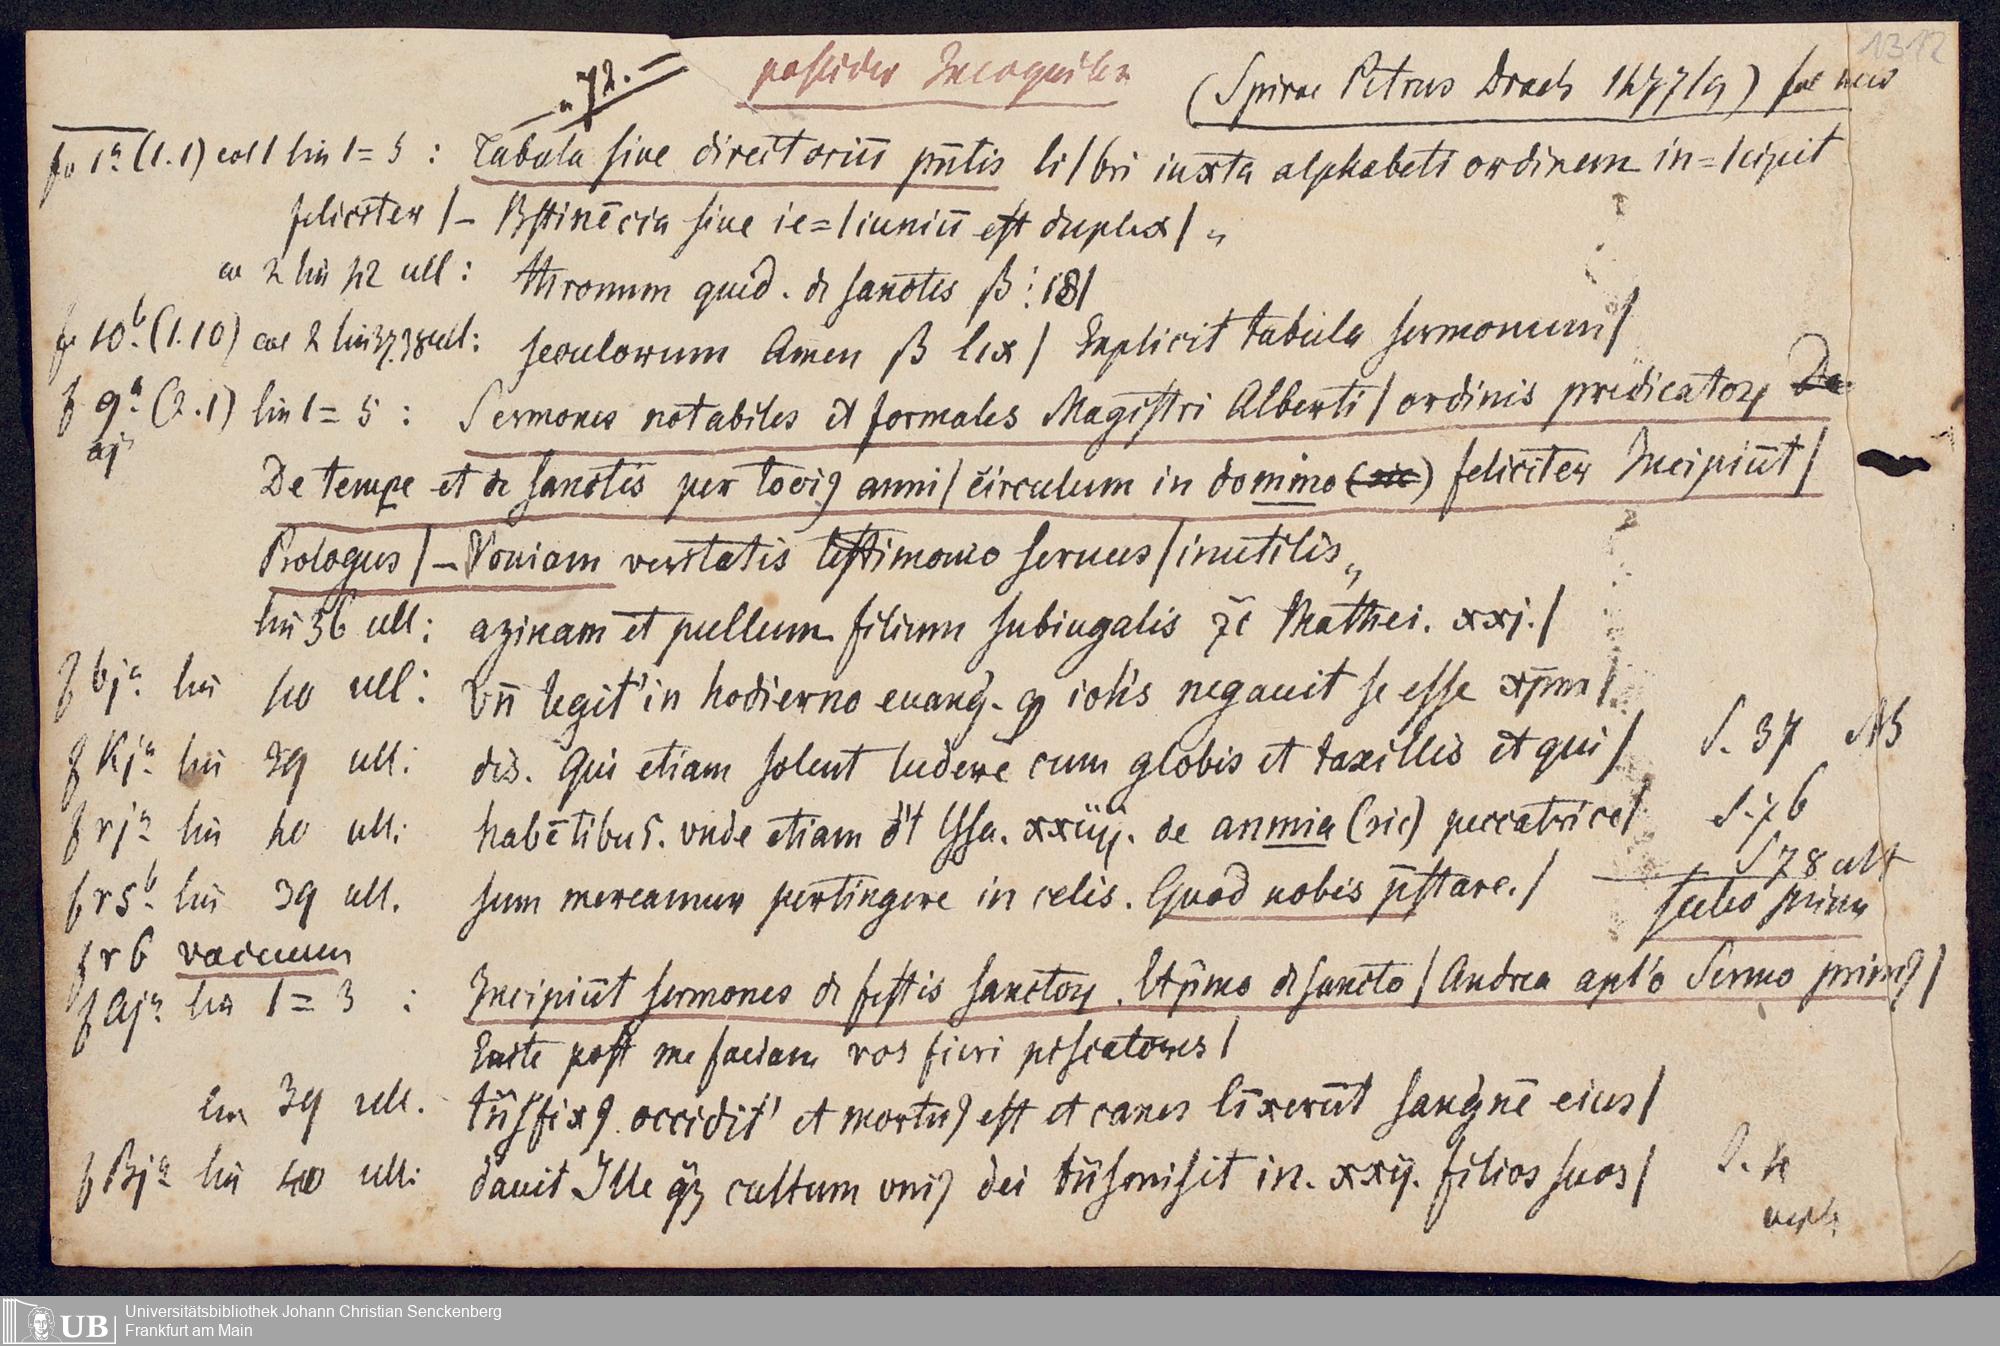 1312
„ 72. postider Incognitus (Spirae Petrus Drach 1477/9)
fo 1a (1.1) col 1 lin 1=5 : Tabula siue directoriū pn̄tis li/bri iuxta alphabeti ordinem in=/cipit
feliciter /– Bstinēcia siue ie=/iuniū est duplex / „
co 2 lin 42 ult : thronum quid. de sanctis ß : 18/
fo 10b (1.10) col 2 lin 37.38 ult : seculorum Amen ß lix / Explicit tabula sermonum /
f 9a (2.1) lin 1=5 : Sermones notabiles et formales Magistri Alberti / ordinis predicatoꝝ De
aj
De tempe et de sanctis per totiꝯ anni / circulum in domino (sic) feliciter Incipiūt /
Prologus /– Voniam veritatis testimonio seruus / inutilis „
lin 36 ult : azinam et pullum filium subiugalis ꝛc̄ Mathei. xxj. /
f bja lin 40 ult : vn̄ legit' in hodierno euang. ꝙ ioh̄s negauit se esse xp̄m /
f Kja lin 39 ult : dis. Qui etiam solent ludere cum globis et taxillis et qui / S. 37 N3
f rja lin 40 ult : habētibus. vnde etiam d't Ysa. xxiij. de anmia (sic) peccatrice / S. 76
f r5b lin 39 ult. sum mereamur pertingere in celis. Quod nobis p̄stare. / S 78 ult
f r 6 vacuum
f Aja lin 1=3 : Incipiūt sermones de festis sanctoꝝ. Et p̄mo de sancto / Andrea apl'o Sermo primꝯ /
Enite post me faciam vos fieri piscatores /
lin 39 ult. trāsfixꝯ occidit' et mortuꝯ est et canes līxerūt sangnē eius /
f Bja lin 40 ult : dauit Ille qꝫ cultum vniꝯ dei trāsmisit in. xxij. filios suos / S. 4
Universitätsbibliothek Johann Christian Senckenberg
UB Frankfurt am Main